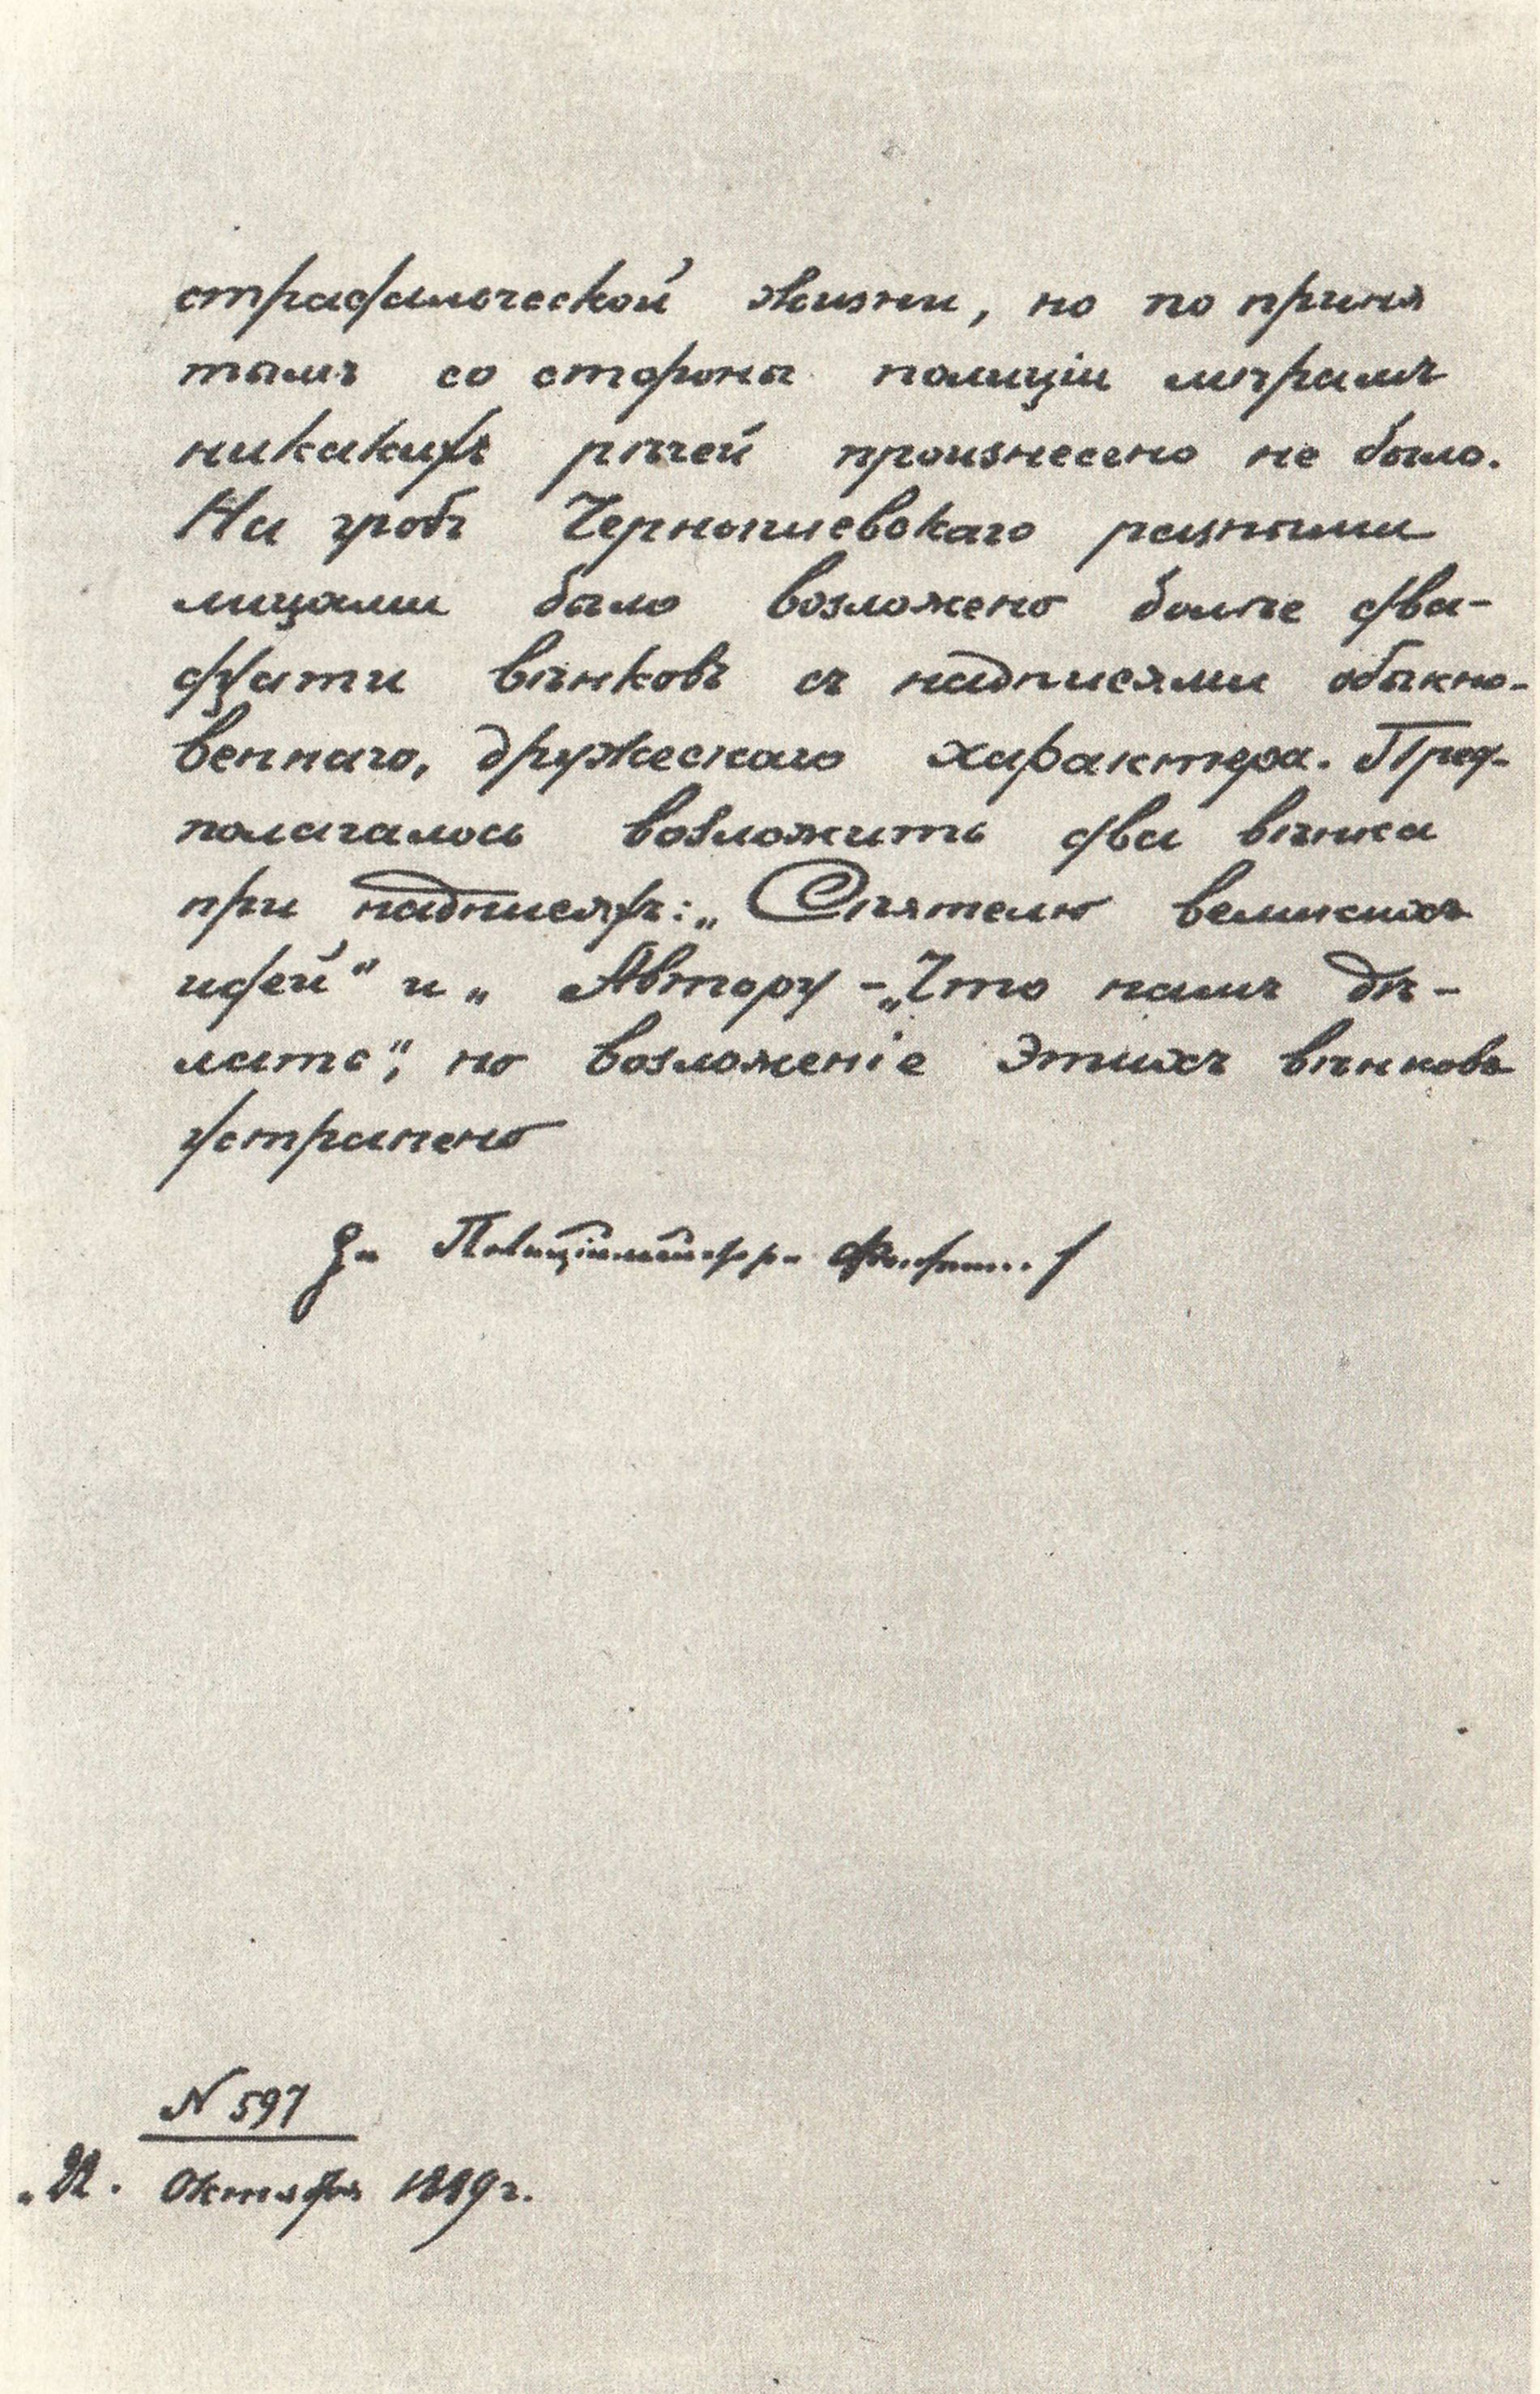 страдальческой жизни, но по приня
тымъ со стороны полиціи мѣрамъ
никакихъ рѣчей произнесено не было.
На гробъ Чернышевскаго разными
лицами было возложено болѣе два-
дцати вѣнковъ съ надписями обыкно-
веннаго, дружескаго характера. Пред-
полагалось возложить два вѣнка
при надписяхъ: „Сѣятелю великихъ
идей“ и „Автору – „Что намъ дѣ-
лать“, но возложеніе этихъ вѣнковъ
устранено
За Полиціймейстера
N 597
Октября 1889 г.